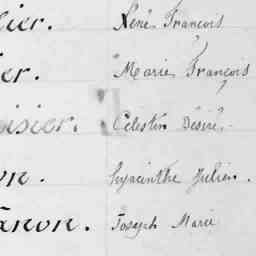 lier. René François
ier. Marie François
isier. Célestin Désiré.
on. Hyacinthe Julien.
anon. Joseph Marie